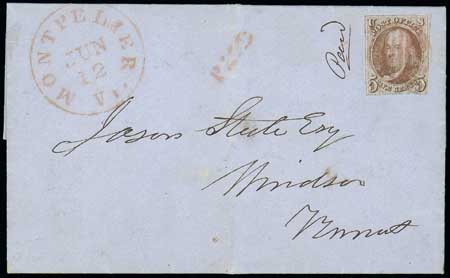 MONTPELIER Vt.
JUN
12
PAID
Paid
POST OFFICE
FIVE CENTS
5 5
Jason Steele Esq
Windsor
Vermont